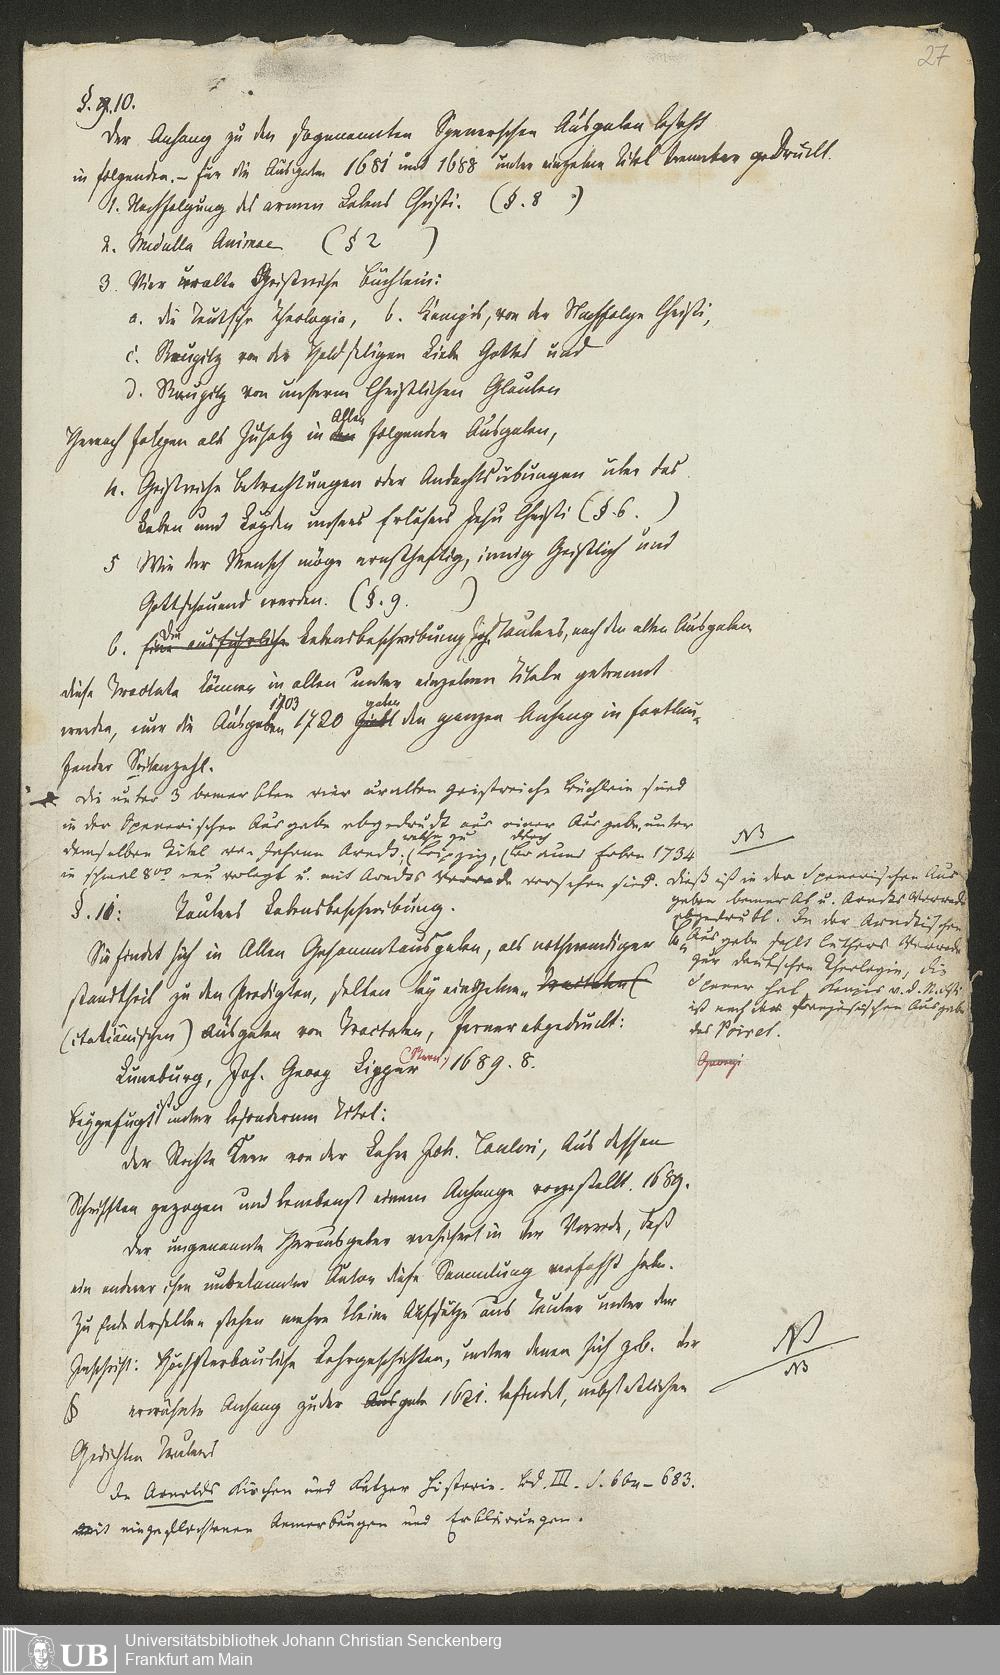 27
§. 10.
Der Anhang zu den sogenannten Spenerschen Ausgaben besteht
in folgenden. – für die Ausgaben 1681 und 1688 unter einzelnen Titel trennbar gedruckt.
1. Nachfolgung des armen Lebens Christi. (§. 8 )
2. Medulla Animae (§ 2 )
3. Vier uralte Geistreiche Büchlein:
a. die Teutsche Theologia, b. Kempis, von der Nachfolge Christi,
c. Staupitz von der Holdseligen Liebe Gottes und
d. Staupitz von unserm Christlichen Glauben
Hernach folgen als Zusatz in Allen folgenden Ausgaben,
4. Geistreiche Betrachtungen oder Andachtsübungen über das
Leben und Leyden unsers Erlösers Jesu Christi (§. 6. )
5 Wie der Mensch möge ernsthafftig, innig Geistlich und
Gottschauend werden. (§. 9. )
6. Die Lebensbeschreibung Joh Taulers, nach den alten Ausgaben
diese Tractate können in allen unter einzelnen Titeln getrennt
werden, nur die Ausgaben 1703 1720 geben den ganzen Anhang in fortlau-
fender Seitenzahl.
Die unter 3 bemerkten vier uralten geistreiche Büchlein sind
in der Spenerischen Ausgabe abgedruckt aus einer Ausgabe, unter
demselben Titel von Johann Arndt: welche zu Leipzig, durch Erben 1734
in schmal 8vo neu verlegt u. mit Arndts Vorrede versehen sind.
NB
Dieß ist in den Spenerischen Aus
gaben bemerkt u. Arndts Vorrede
abgedruckt. In der Arndtischen
Ausgabe fehlt Luthers Vorrede
zur deutschen Theologie, die
Spener hat. Kempis v. d. N. Chr.
ist nach der französischen Ausgabe
des Poiret.
§. 11: Taulers Lebensbeschreibung.
Sie findet sich in Allen Gesammtausgaben, als nothwendiger Be-
standtheil zu den Predigten, selten bey einzelnen
Ausgaben von Tractaten, ferner abgedruckt:
Luneburg, Joh. Georg Lipper (Stern) 1689. 8.
Beygefügt ist unter besonderem Titel:
Der Rechte Kern von der Lehre Joh. Tauleri, Aus dessen
Schrifften gezogen und benebenst einem Anhange vorgestellt. 1689.
Der ungenannte Herausgeber versichert in der Vorrede, daß
ein anderer ihm unbekannter Autor diese Sammlung verfaßt habe.
Zu Ende derselben stehen mehre kleine Aufsätze aus Tauler unter der
Inschrift: Höchsterbauliche Lehrgeschichten, unter denen sich der
§ erwähnte Anhang zu der Ausgabe 1621. befindet, nebst etlichen
Gedichten Taulers
NB
In Arnolds Kirchen und Ketzer Historie. Bd. III. S. – 683.
mit eingeflochtenen Anmerkungen und Erklärungen.
UB Universitätsbibliothek Johann Christian Senckenberg
Frankfurt am Main